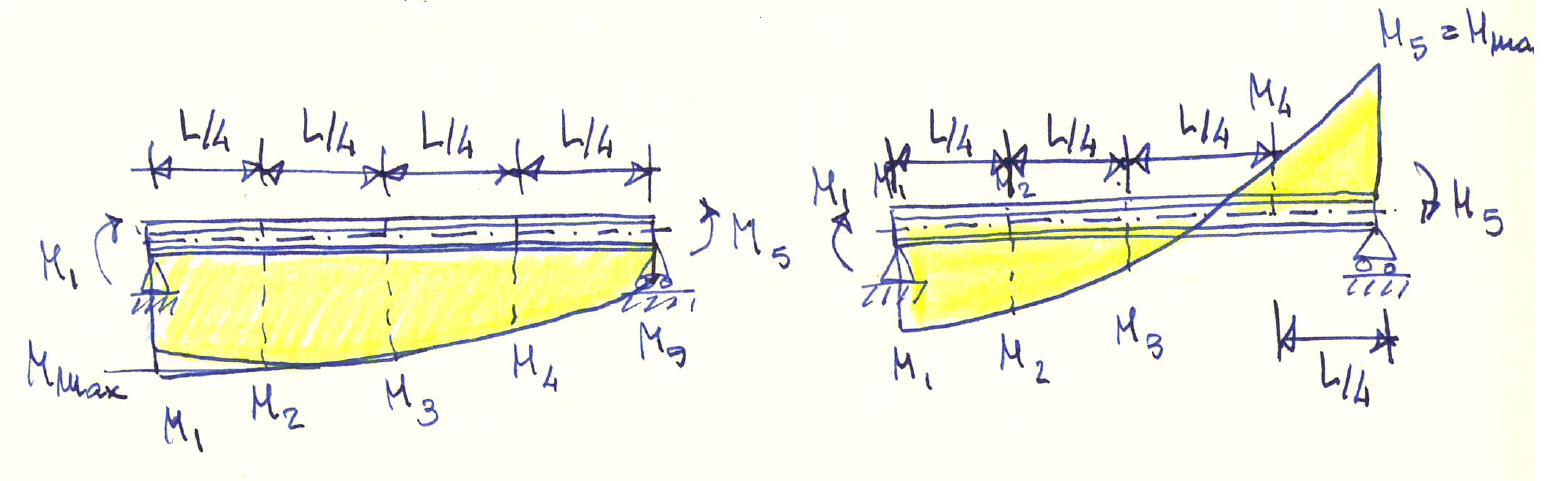 L/4 L/4 L/4 L/4
M1
M5
Mmax
M1 M2 M3 M4 M5
M5 = Mma
M4
L/4 L/4 L/4
M1 M1 M2
M5
M1 M2 M3
L/4